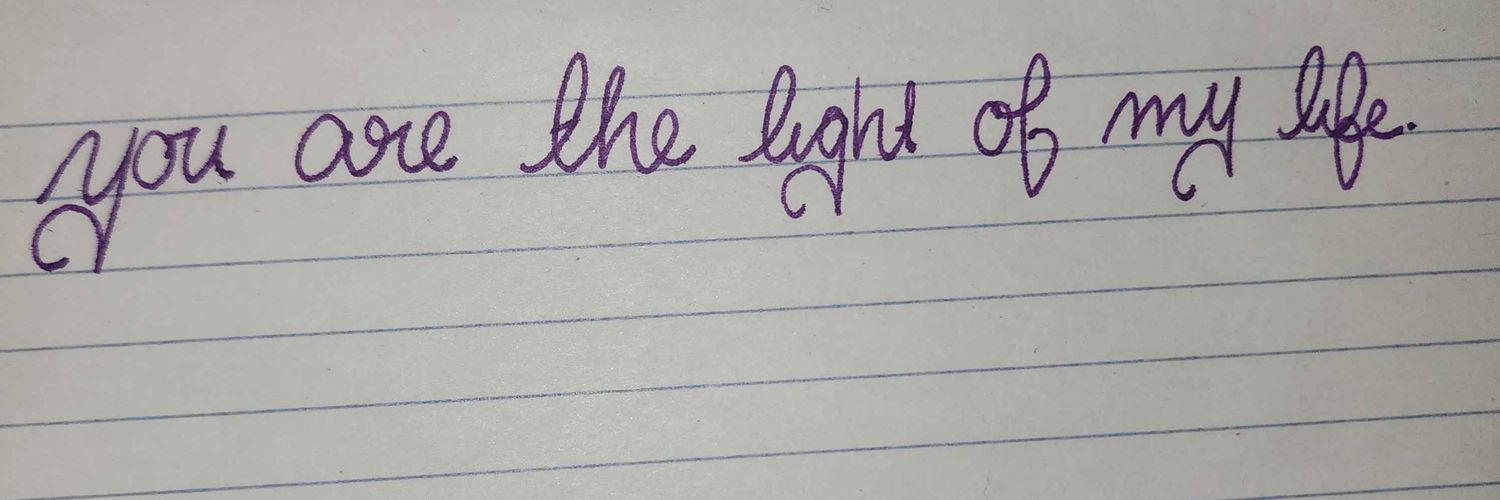 you are the light of my life.